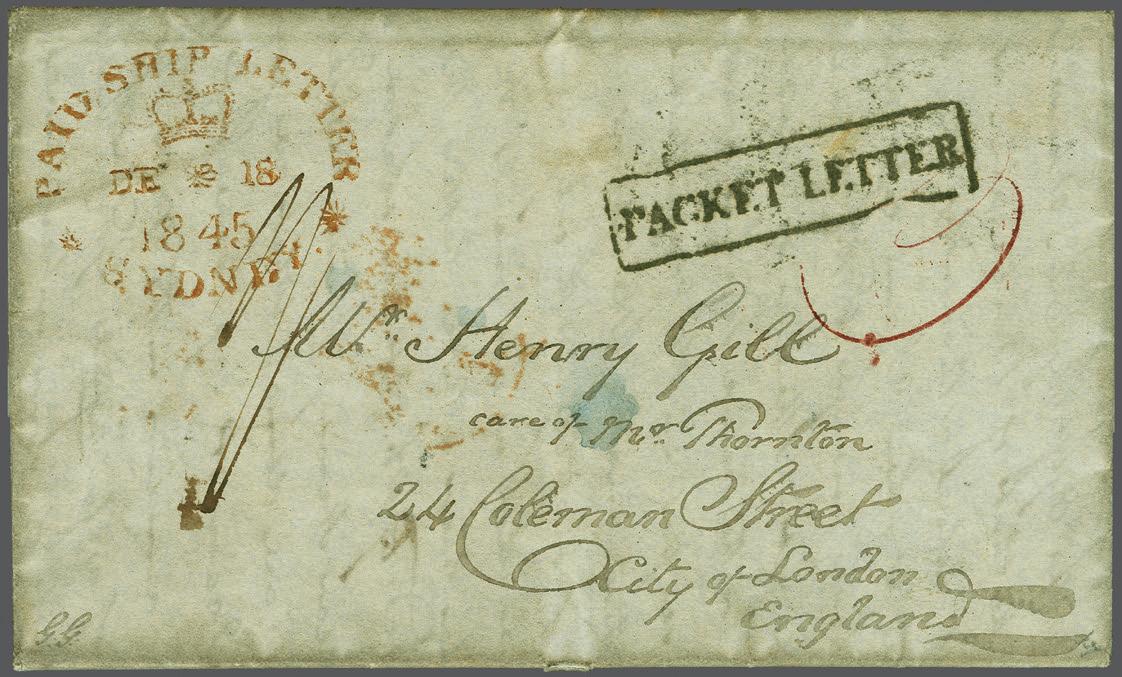 PAID SHIP LETTER
DE 18
1845
SYDNEY
PACKET LETTER
Mr. Henry Gill
care of Mr. Thornton
24 Coleman Street
City of London
England
G.G.